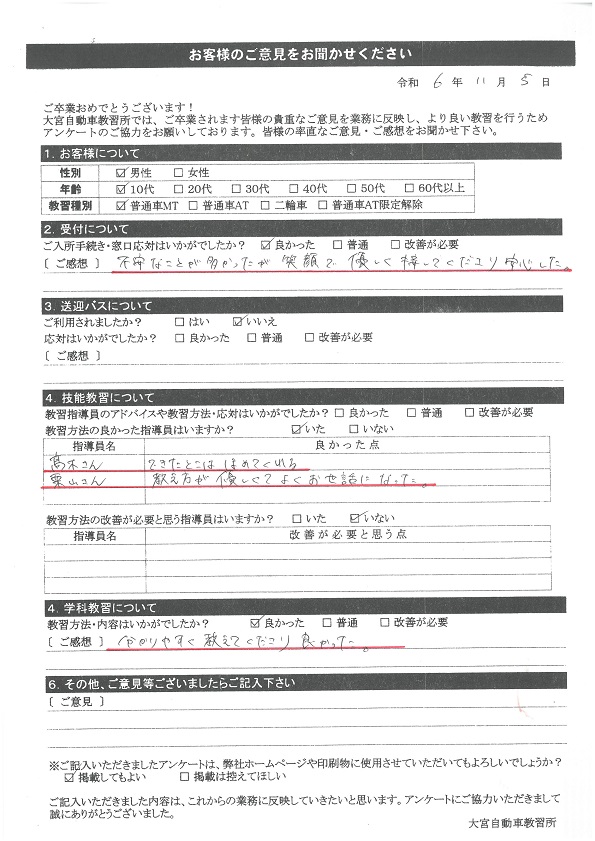 お客様のご意見をお聞かせください
令和 6 年 11 月 5 日
ご卒業おめでとうございます！
大宮自動車教習所では、ご卒業されます皆様の貴重なご意見を業務に反映し、より良い教習を行うため
アンケートのご協力をお願いしております。皆様の率直なご意見・ご感想をお聞かせ下さい。
1. お客様について
性別 ☑男性 □女性
年齢 ☑10代 □20代 □30代 □40代 □50代 □60代以上
教習種別 ☑普通車MT □普通車AT □二輪車 □普通車AT限定解除
2. 受付について
ご入所手続き・窓口応対はいかがでしたか？ ☑良かった □普通 □改善が必要
〔 ご感想 〕 不安なことが多かったが 笑顔で 優しく 接してくださり 安心した。
3. 送迎バスについて
ご利用されましたか？ □はい ☑いいえ
応対はいかがでしたか？ □良かった □普通 □改善が必要
〔 ご感想 〕
4. 技能教習について
教習指導員のアドバイスや教習方法・応対はいかがでしたか？ □良かった □普通 □改善が必要
教習方法の良かった指導員はいますか？ ☑いた □いない
指導員名 良かった点
高木さん できたとこは ほめてくれる
栗山さん 教え方が 優しくて よく お世話に なった。
教習方法の改善が必要と思う指導員はいますか？ □いた ☑いない
指導員名 改善が必要と思う点
4. 学科教習について
教習方法・内容はいかがでしたか？ ☑良かった □普通 □改善が必要
〔 ご感想 〕 分かりやすく 教えてくださり 良かった。
6. その他、ご意見等ございましたらご記入下さい
〔 ご意見 〕
※ご記入いただきましたアンケートは、弊社ホームページや印刷物に使用させていただいてもよろしいでしょうか？
☑掲載してもよい □掲載は控えてほしい
ご記入いただきました内容は、これからの業務に反映していきたいと思います。アンケートにご協力いただきまして
誠にありがとうございました。
大宮自動車教習所